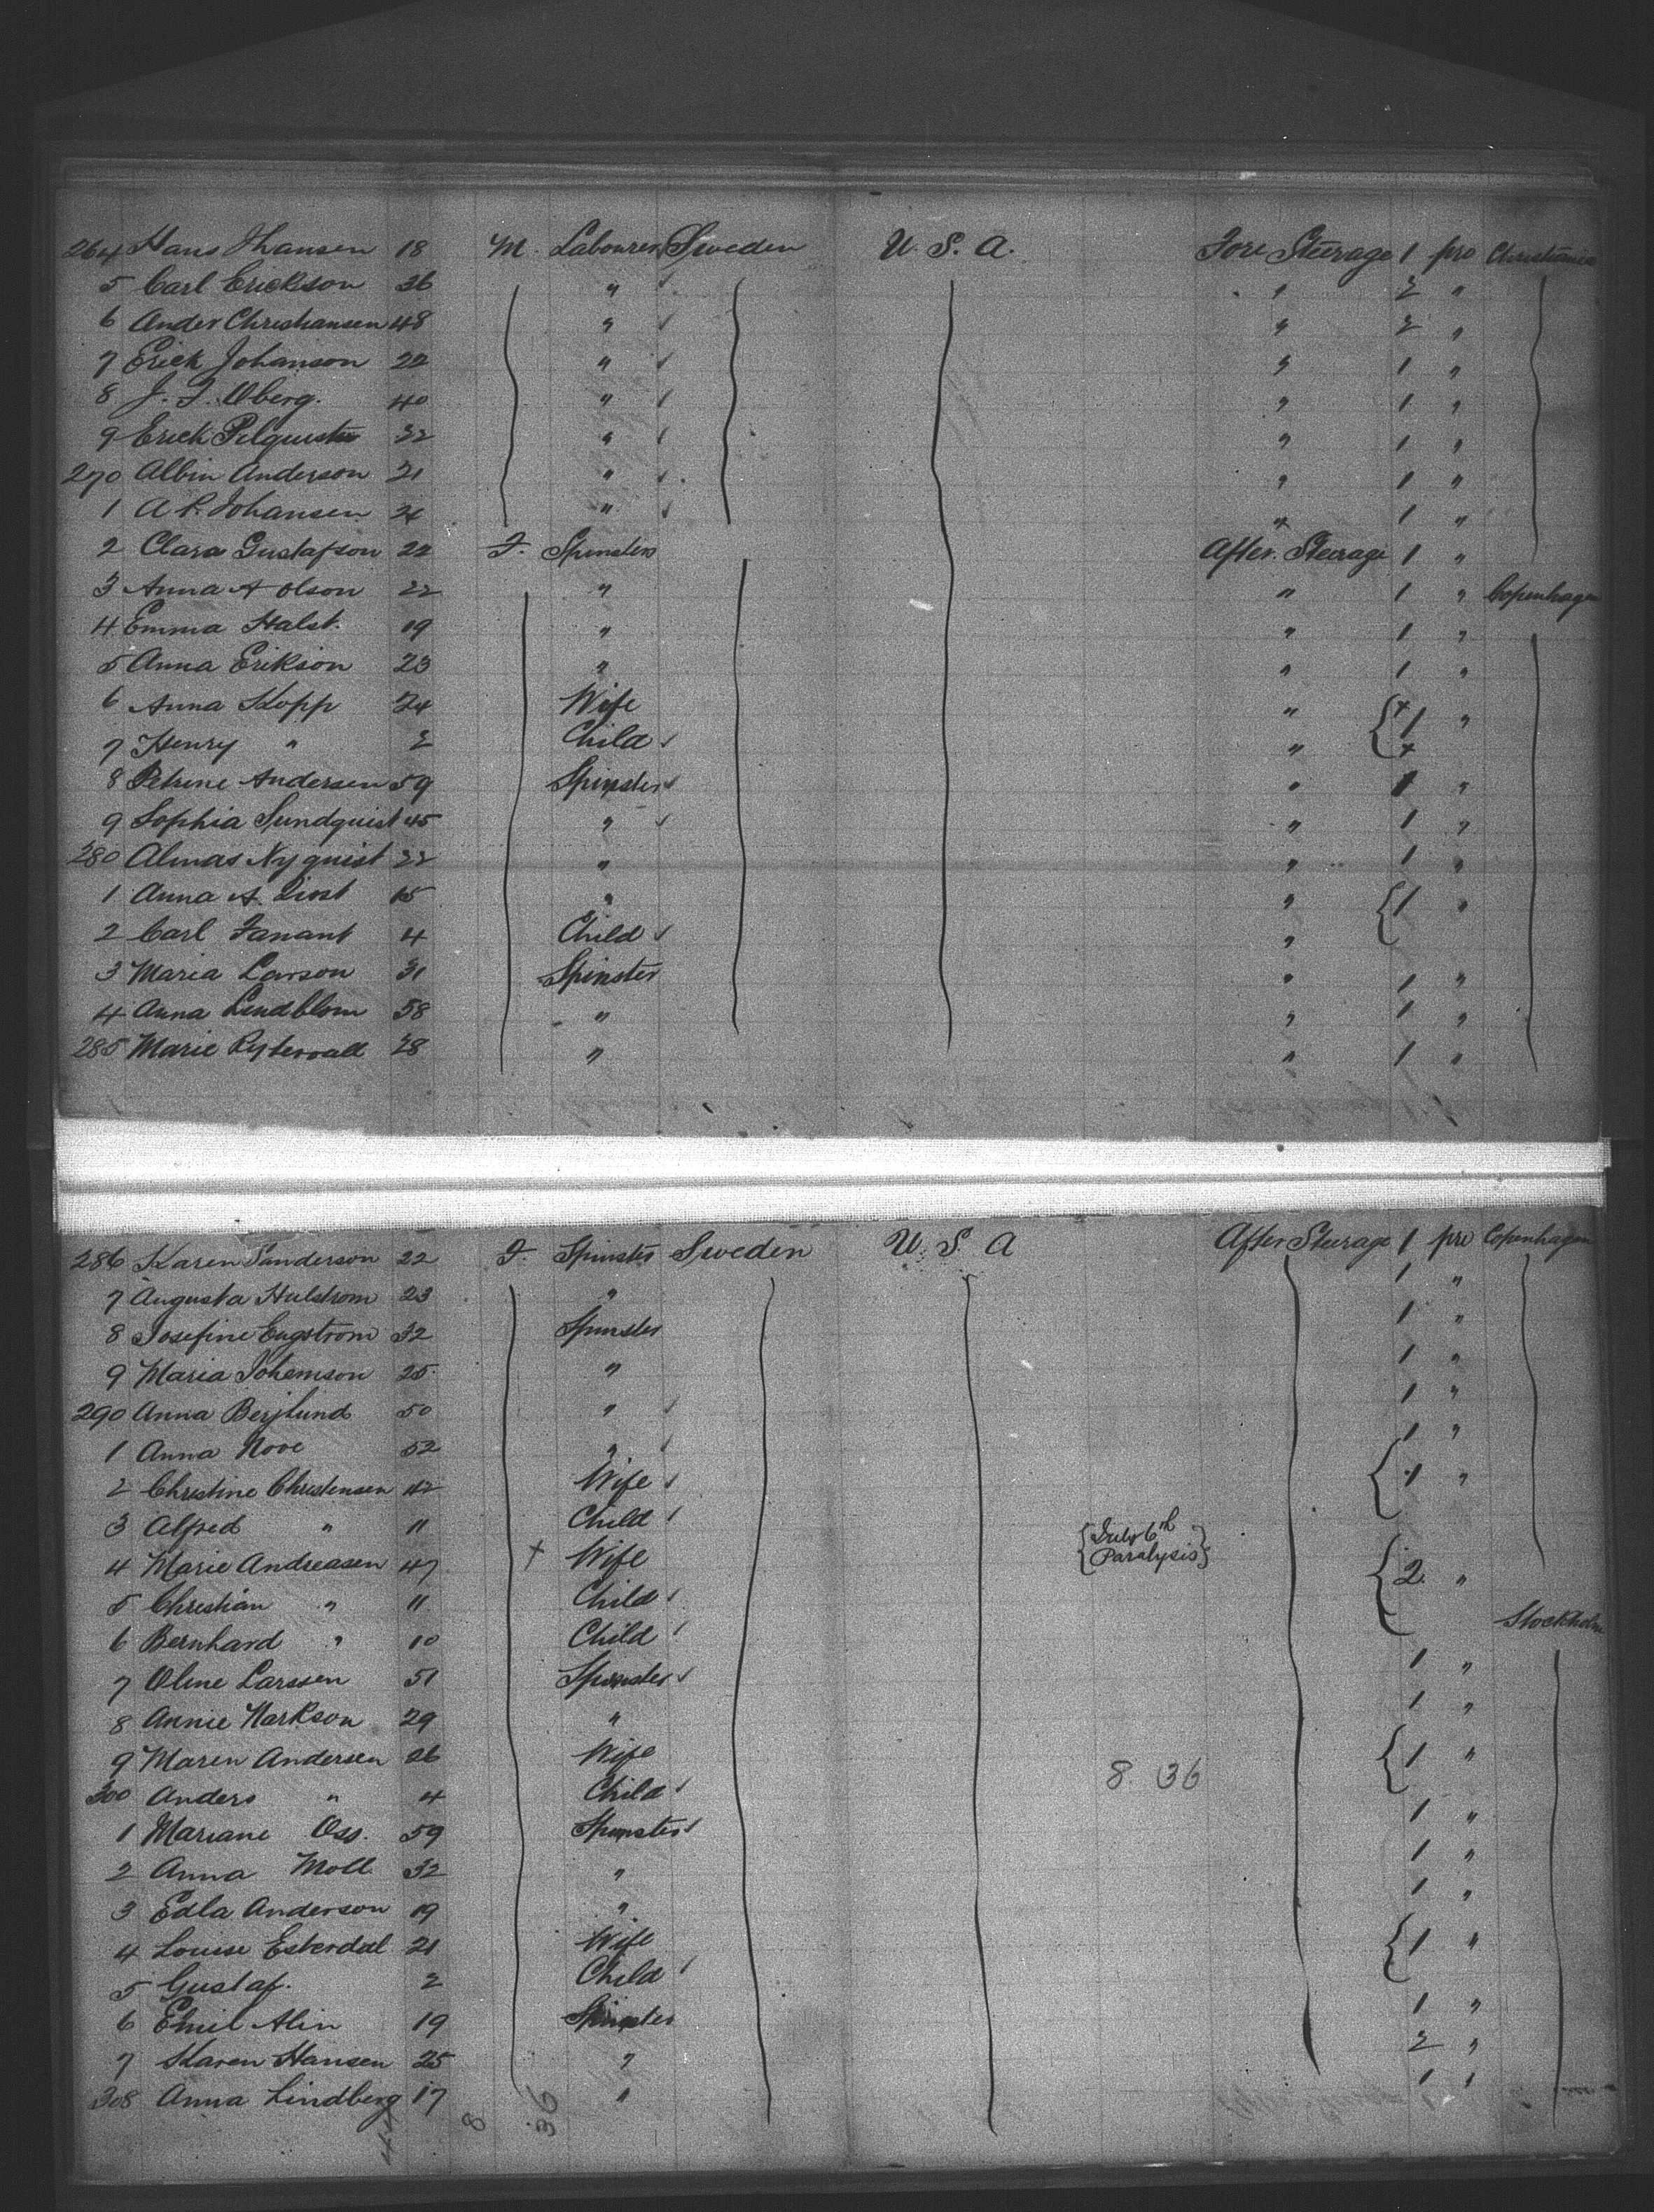 264 Hans Jhansen 18 M. Labourer Sweden U. S. A. Fore Steerage 1 pro Christiania
5 Carl Erickson 26 " " 2 "
6 Ander Christiansen 48 " " 2 "
7 Erick Johanson 22 " " 1 "
8 J. F. Oberg. 40 " " 1 "
9 Erick 22 " " 1 "
270 Albin Anderson 21 " " 1 "
1 A P. Johansen " " 1 "
2 Clara Gustafson 22 F. Spinster After Steerage 1 "
3 Anna A Olson 22 " " 1 " Copenhagen
4 Emma Halst. 19 " " 1 "
5 Anna Erikson 23 " " 1 "
6 Anna Kopp 24 Wife " 1 "
7 Henry " 2 Child "
8 Petrine Andersen 59 Spinster " 1 "
9 Sophia Sundquist 45 " " 1 "
280 Almas Nyquist 22 " " 1 "
1 Anna A. " " 1 "
2 Carl Fanant 4 Child "
3 Maria Larson 31 Spinster " 1 "
4 Anna Lindblom 58 " " 1 "
285 Marie 28 " " 1 "
286 Karen Sanderson 22 F. Spinster Sweden U. S. A After Steerage 1 pro Copenhagen
7 Augusta Hulstrom 23 " 1 "
8 Josefine Engstrom 32 Spinster 1 "
9 Maria Johemson 25 " 1 "
290 Anna Berjlund 50 " 1 "
1 Anna Nore 52 " 1 "
2 Christine Christensen 42 Wife 1 "
3 Alfred " 11 Child
4 Marie Andreasen 47 + Wife July 6th Paralysis 2 "
5 Christian " 11 Child
6 Bernhard " 10 Child Stockholm
7 Oline Larssen 51 Spinster 1 "
8 Annie Narkson 29 " 1 "
9 Maren Andersen 26 Wife 1 "
300 Anders " 4 Child 8 36
1 Mariane Oss. 59 Spinster 1 "
2 Anna Moll 32 " 1 "
3 Edla Anderson 19 " 1 "
4 Louise Esterdal 21 Wife 1 "
5 Gustaf. 2 Child
6 Emil Alin 19 Spinster 1 "
7 Karen Hansen 25 " 2 "
308 Anna Lindberg 17 " 1 "
8 36